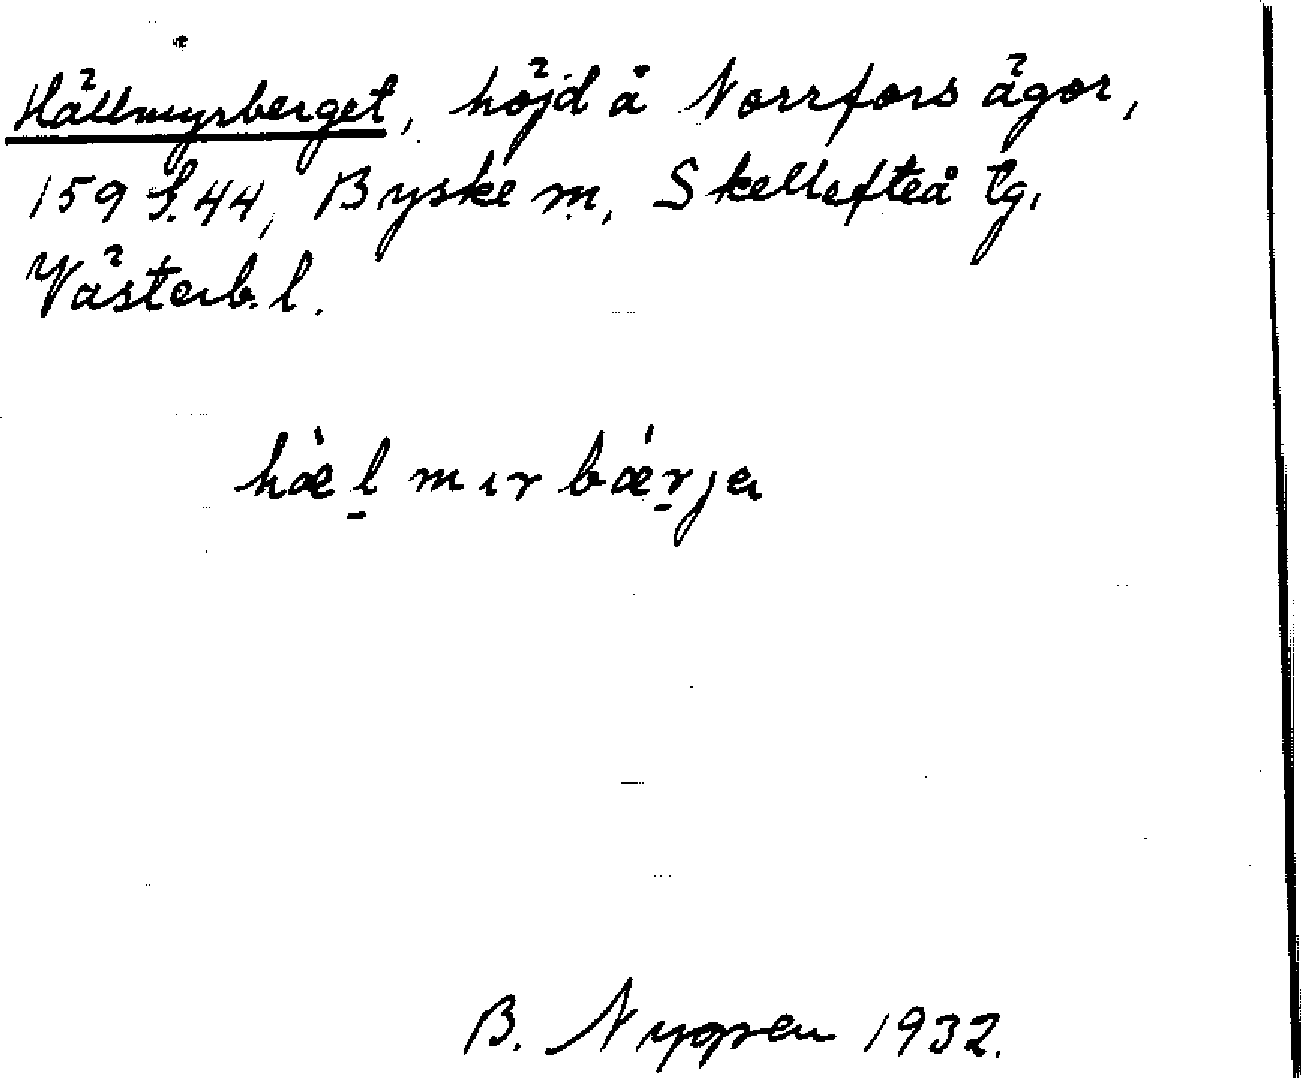 Hällmyrberget, höjd å Norrfors ägor,
159 f. 44, Byske m, Skellefteå tg,
Västerb. l.
hæ̀l̠mırbǽr̠ja
B. Nygren 1932.